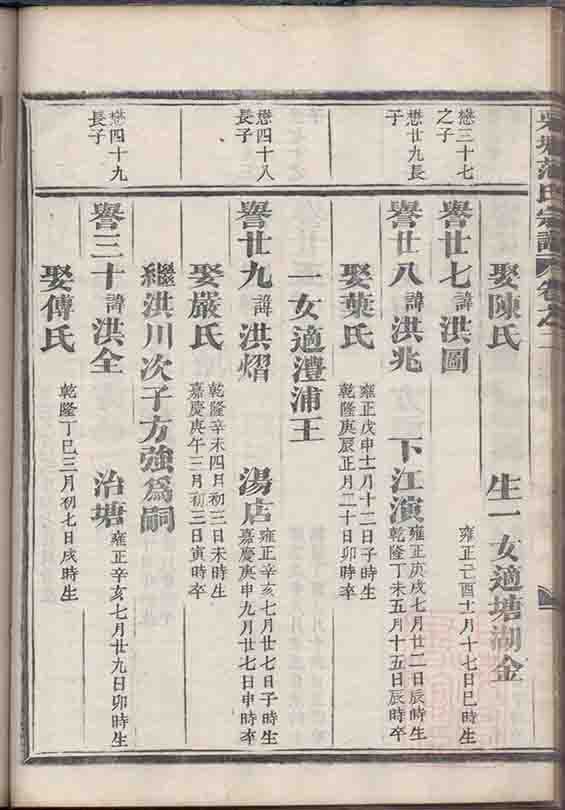 范氏宗譜 卷之二
娶陳氏 生一女適塘湖金
懋三十七
之子
譽廿七 諱 洪圖
雍正己酉十一月十七日巳時生
懋廿九長
子
譽廿八 諱 洪兆 下江演
雍正庚戌七月廿二日辰時生
乾隆丁未五月十五日辰時卒
娶葉氏
雍正戊申十二月十二日子時生
乾隆庚辰正月二十日卯時卒
一女適澧浦王
懋四十八
長子
譽廿九 諱 洪熠 湯店
雍正辛亥七月廿七日子時生
嘉慶庚申九月廿七日申時卒
娶嚴氏
乾隆辛未四月初三日未時生
嘉慶庚午三月初三日寅時卒
繼洪川次子方強為嗣
懋四十九
長子
譽三十 諱 洪全 治塘
雍正辛亥七月廿九日卯時生
娶傅氏
乾隆丁巳三月初七日戌時生